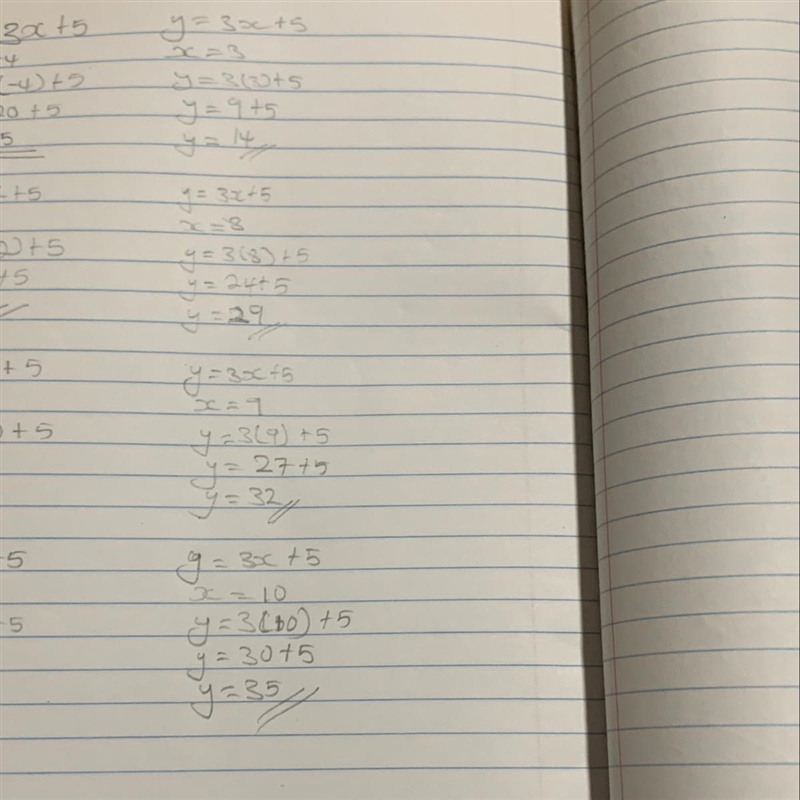 3x+5
-4
(-4)+5
20+5
5
+5
2)+5
+5
+5
)+5
+5
+5
y=3x+5
x=3
y=3(3)+5
y=9+5
y=14
y=3x+5
x=8
y=3(8)+5
y=24+5
y=29
y=3x+5
x=9
y=3(9)+5
y=27+5
y=32
y=3x+5
x=10
y=3(10)+5
y=30+5
y=35